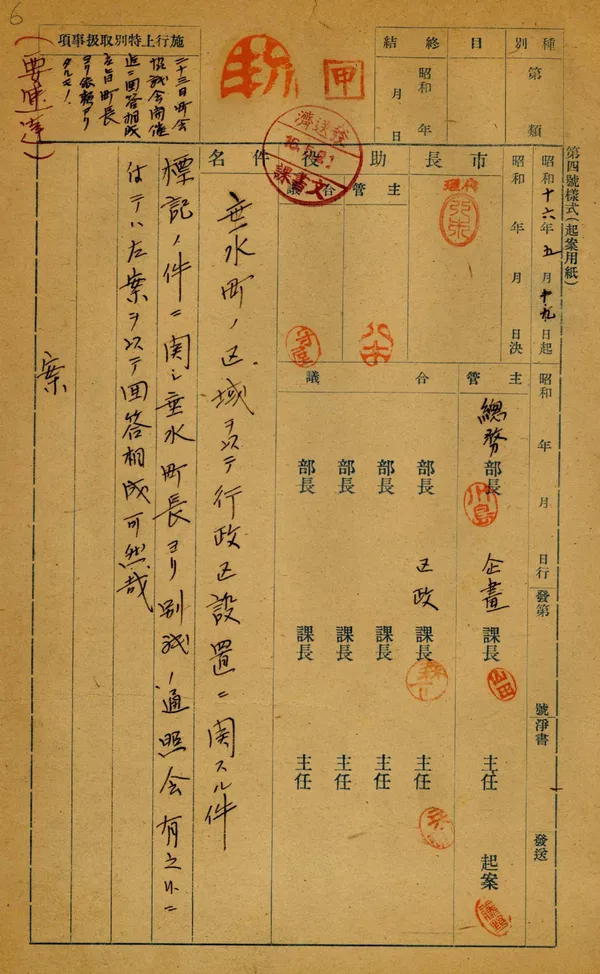 6
第四號樣式(起案用紙)
種別
第 類
目
結終
昭和 年 月 日
甲
施行上特別取扱事項
二十三日町会
協議会開催
迄ニ回答相成
度旨町長
ヨリ依頼アリ
タルモノ
(要速達)
昭和十六年五月十九日起
昭和 年 月 日決
昭和 年 月 日行
發第 號
淨書
發送
市長
代理
助役
主管
合議
件名
發送濟
文書課
主管
總務部長
川島
企畫課長
山田
主任
起案
合議
部長
區政課長
森
主任
部長
課長
主任
部長
課長
主任
部長
課長
主任
垂水町ノ区域ヲ以テ行政区設置ニ関スル件
標記ノ件ニ関シ垂水町長ヨリ別紙ノ通照会有之候ニ
付テハ左案ヲ以テ回答相成可然哉
案